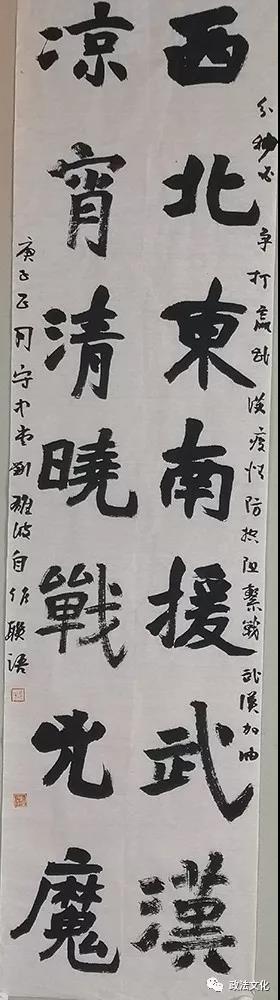 分秒必争打赢武漢疫情防控阻擊戰 武漢加油
西北東南援武漢
凉宵清曉戰兇魔
庚子正月守中堂劉波自作聯語
政法文化